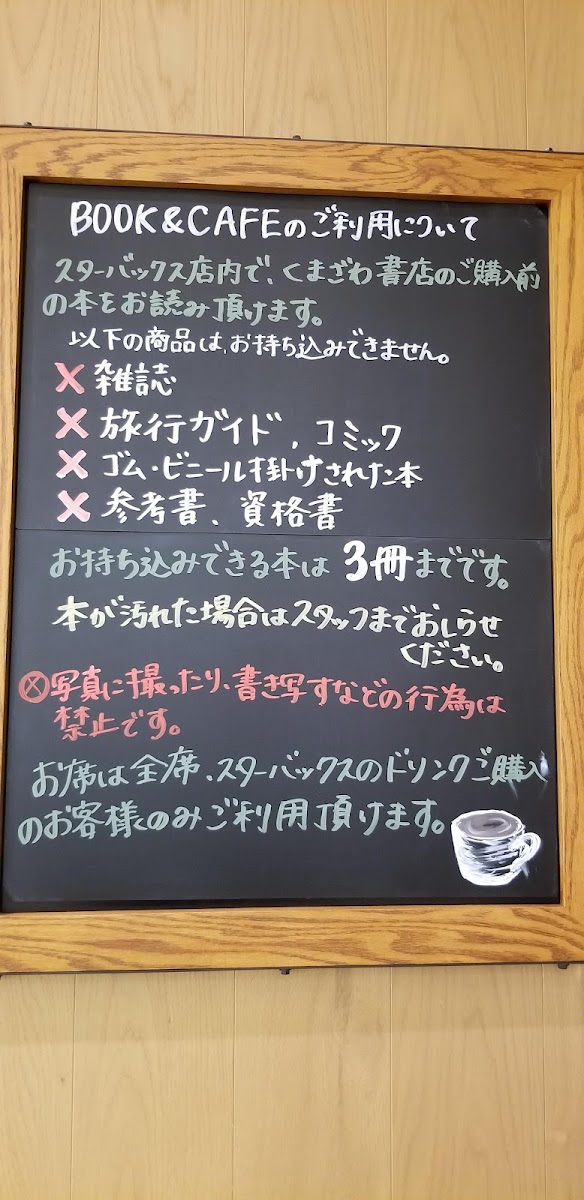 BOOK&CAFEのご利用について
スターバックス店内で、くまざわ書店のご購入前
の本をお読み頂けます。
以下の商品は、お持ち込みできません。
✕ 雑誌
✕ 旅行ガイド、コミック
✕ ゴム・ビニール掛けされた本
✕ 参考書、資格書
お持ち込みできる本は 3冊までです。
本が汚れた場合はスタッフまでおしらせ
ください。
ⓧ写真に撮ったり、書き写すなどの行為は
禁止です。
お席は全席、スターバックスのドリンクご購入
のお客様のみご利用頂けます。